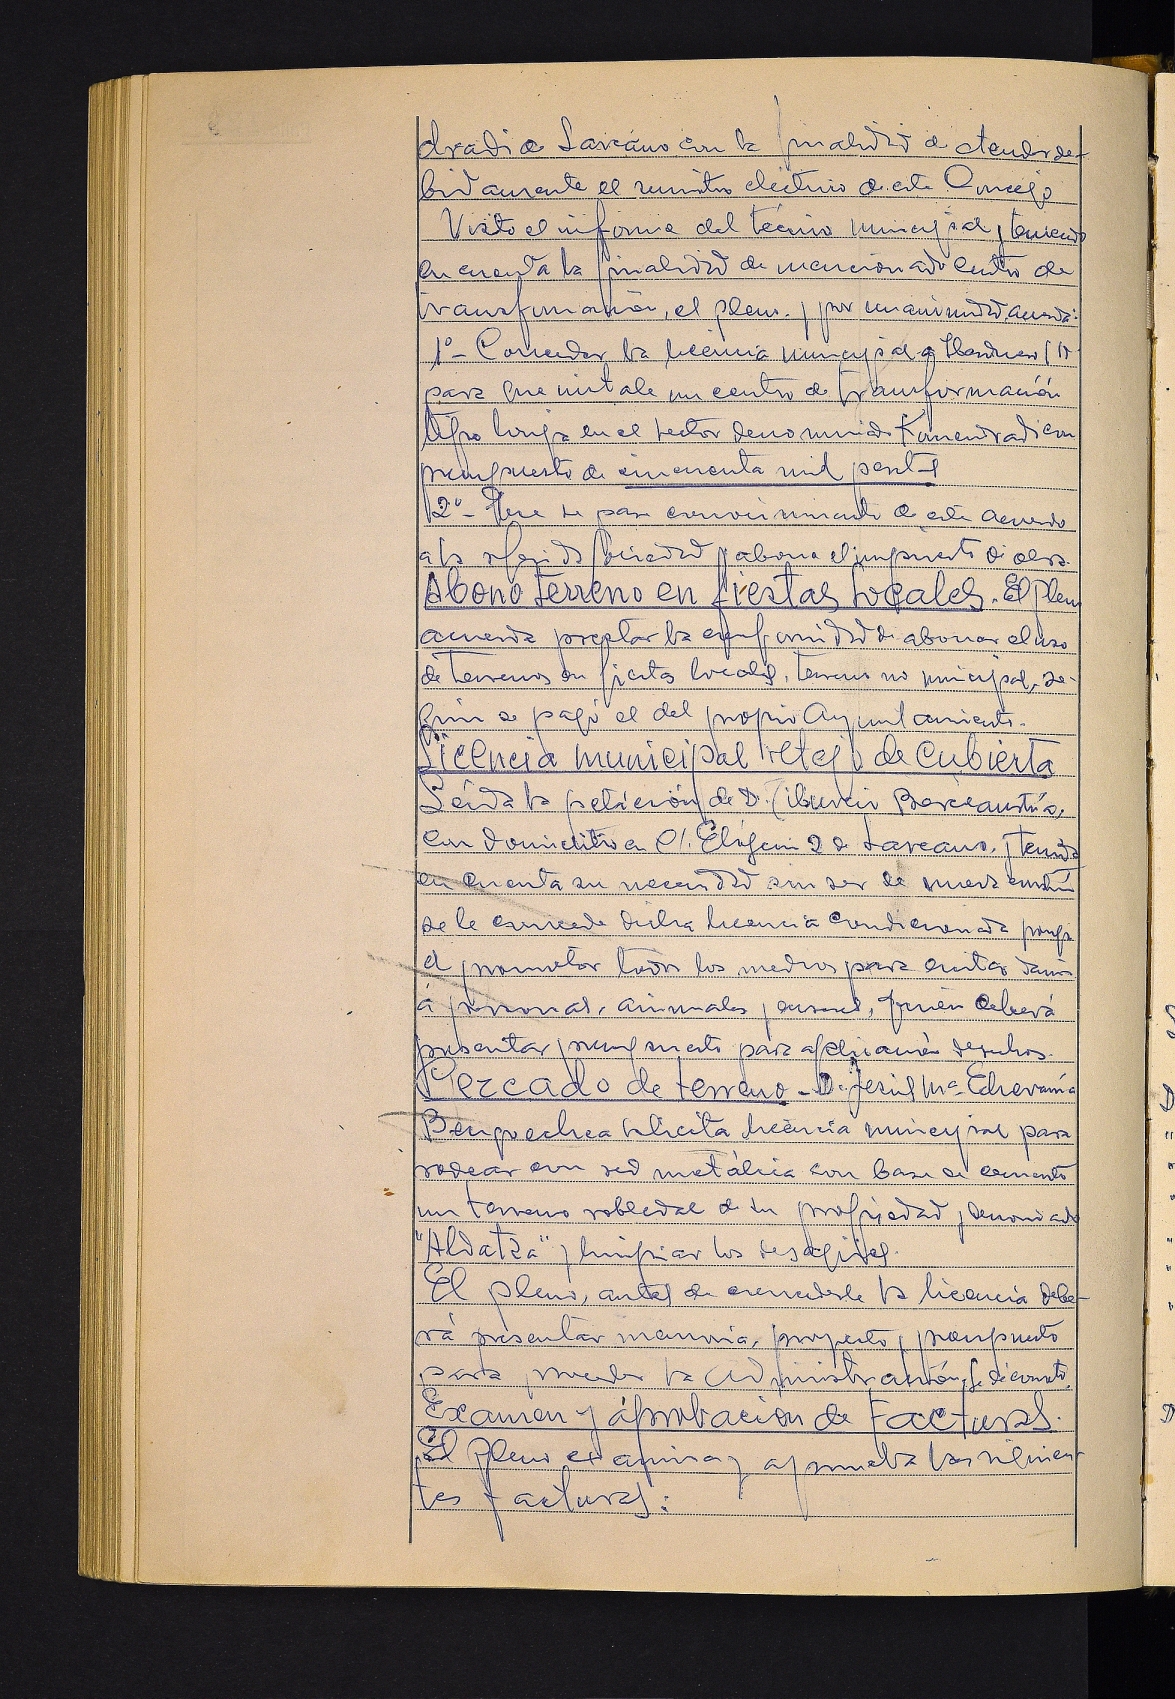 dradi de Larcáno con la finalidad de atender de-
bidamente el suministro eléctrico de este Concejo
Visto el informe del técnico municipal y teniendo
en cuenta la finalidad de mencionado centro de
transformación, el pleno, y por unanimidad, acuerda:
1º- Conceder la licencia municipal a Iberduero S/A
para que instale un centro de transformación
tipo lonja en el sector denominado con
presupuesto de cincuenta mil pesetas
2º- Que se pase conocimiento de este acuerdo
a la referida Sociedad y abone el impuesto de obra.
Abono terreno en fiestas locales. El pleno
acuerda prestar la conformidad de abonar el uso
de terrenos en fiestas locales, terreno no municipal, se-
gún se pagó el del propio Ayuntamiento.
Licencia municipal retejo de cubierta
Leída la petición de D. Tiburcio
con domicilio en C/. Elógeni 2 de Larcano, y tenida
en cuenta su necesidad sin ser de nueva
se le concede dicha licencia condicionada ponga
el promotor todos los medios para evitar daños
á personas, animales y cosas, quien deberá
presentar presupuesto para aplicación derechos.
Cercado de terreno - D. Jesús Mª Echevarría
Bengoechea solicita licencia municipal para
rodear con red metálica con base de cemento
un terreno robledal de su propiedad y denominado
"Aldatza" y limpiar los desagües.
El pleno, antes de concederle la licencia debe-
rá presentar memoria, proyecto y presupuesto
para proceder la Administración
Examen y áprobación de Facturas.
El Pleno examina y aprueba las siguien-
tes facturas: